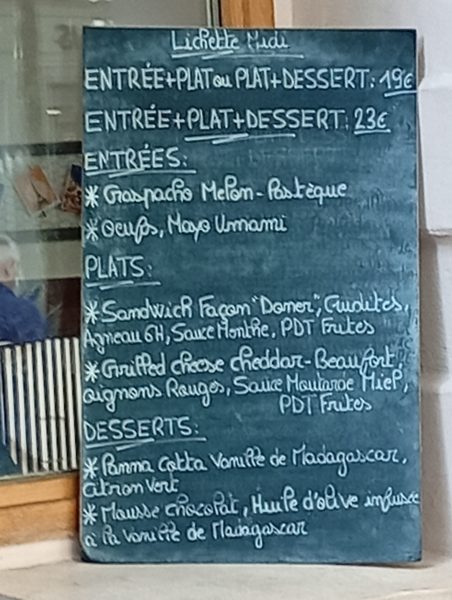 Lichette Midi
ENTRÉE+PLAT ou PLAT+DESSERT: 19€
ENTRÉE+PLAT+DESSERT: 23€
ENTRÉES:
* Graspacho Melon-Pastèque
* Oeufs, Mayo Umami
PLATS:
* Sandwich Façon "Doner", Crudités,
Agneau 6H, Sauce Menthe, PDT Frites
* Grilled cheese cheddar-Beaufort
oignons Rouges, Sauce Moutarde Miel,
PDT Frites
DESSERTS:
* Panna Cotta Vanille de Madagascar,
Citron Vert
* Mousse chocolat, Huile d'olive infusée
à la Vanille de Madagascar